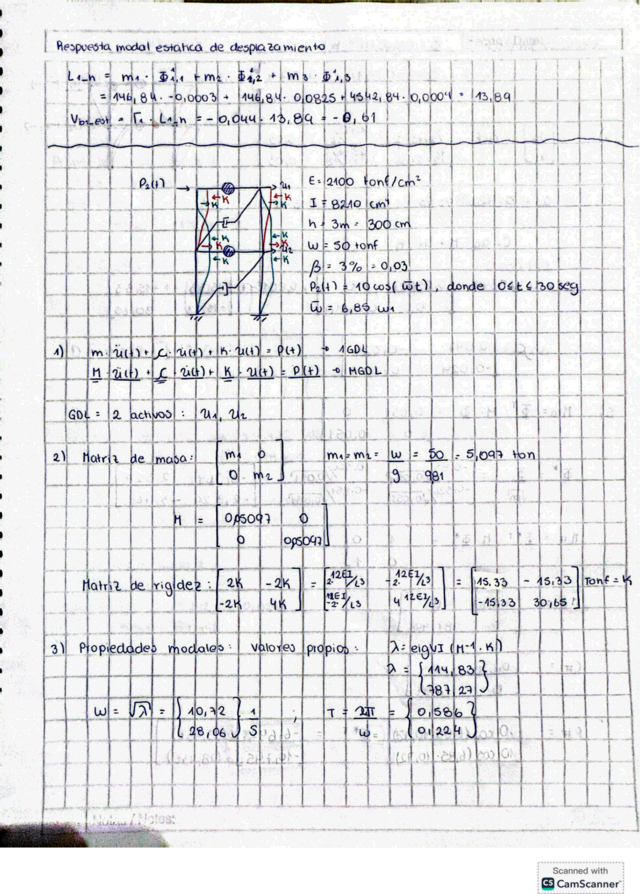 Respuesta modal estatica de desplazamiento
L1_n = m1 · Φ1,1 + m2 · Φ1,2 + m3 · Φ1,3
= 146,84 · -0,0003 + 146,84 · 0,0825 + 4542,84 · 0,0004 = 13,89
Vbs,est = Γ1 · L1_n = -0,044 · 13,89 = -0,61
P2(t) → u1
E = 2100 tonf/cm²
I = 8210 cm⁴
h = 3m = 300 cm
u2
W = 50 tonf
β = 3% = 0,03
P2(t) = 10 cos(ω̄t), donde 0≤t≤30 seg
ω̄ = 6,85 ω1
1) m · ü(t) + C · u̇(t) + K · u(t) = P(t) → 1GDL
M · ü(t) + C · u̇(t) + K · u(t) = P(t) → MGDL
GDL = 2 activos: u1, u2
2) Matriz de masa: [m1 0; 0 m2] m1 = m2 = W/g = 50/981 = 5,097 ton
M = [0,05097 0; 0 0,05097]
Matriz de rigidez: [2K -2K; -2K 4K] = [2·12EI/L3 -2·12EI/L3; -2·12EI/L3 4·12EI/L3] = [15.33 -15.33; -15.33 30,65] Tonf = K
3) Propiedades modales: valores propios: λ = eigvI (M-1 · K)
λ = {114,83; 787,27}
ω = √λ = {10,72; 28,06} 1/S ; T = 2π/ω = {0,586; 0,224}
Notas / Notes:
Scanned with
CS CamScanner